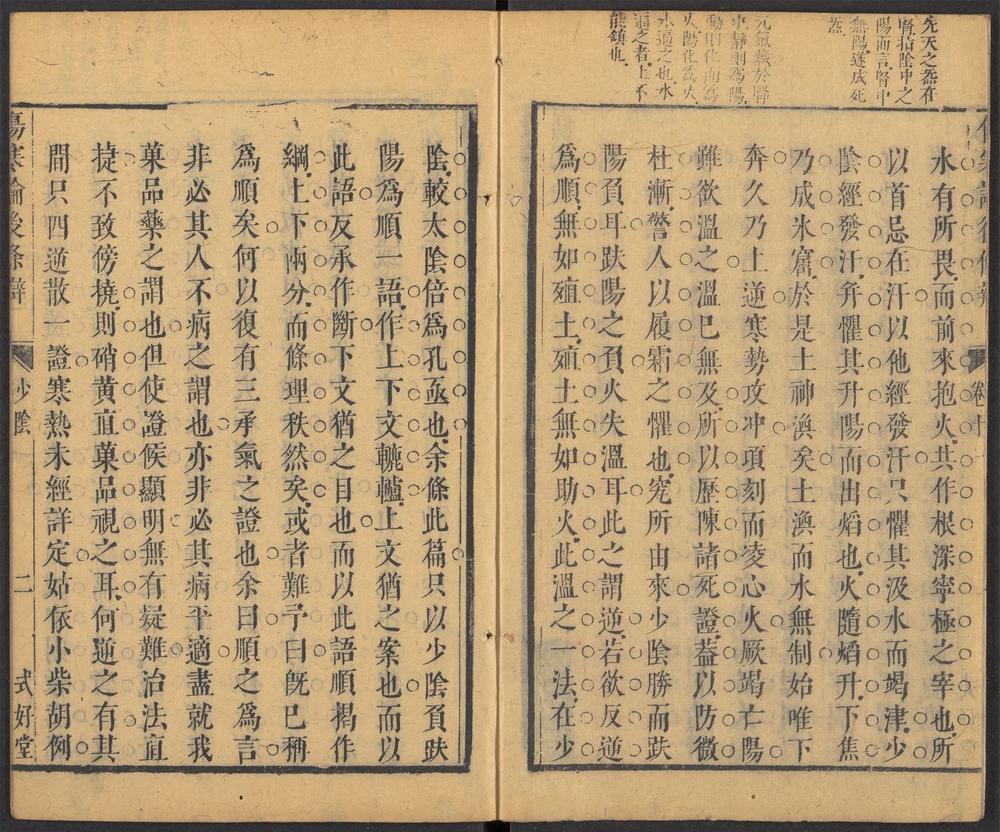 先天之炁在
腎指陰中之
陽而言腎中
無陽遂成死
炁
元氣藏於腎
中靜則為陽
動則化而為
火陽化為火
水逼之也水
逼之者上不
能鎮也
水有所畏而前來抱火其作根深寧極之宰也所
以首忌在汗以他經發汗只懼其汲水而竭津少
陰經發汗弁懼其升陽而出焰也火隨焰升下焦
乃成氷窟於是土神渙矣土渙而水無制始唯下
奔久乃上逆寒勢攻冲項刻而凌心火厥竭亡陽
雖欲溫之溫巳無及所以歷陳諸死證葢以防微
杜漸警人以履霜之懼也究所由來少陰勝而趺
陽負耳趺陽之負火失溫耳此之謂逆若欲反逆
爲順無如殖土殖土無如助火此溫之一法在少
陰較太陰倍爲孔亟也余條此篇只以少陰負趺
陽爲順一語作上下文轆轤上文猶之案也而以
此語反承作斷下文猶之目也而以此語順揭作
綱上下兩分而條理秩然矣或者難予曰旣巳稱
爲順矣何以復有三承氣之證也余曰順之爲言
非必其人不病之謂也亦非必其病平適盡就我
菓品藥之謂也但使證候顯明無有疑難治法直
㨗不致傍撓則硝黃直菓品視之耳何逆之有其
間只四逆散一證寒熱未經詳定姑依小柴胡例
傷寒論後條辨
少陰
二
式好堂